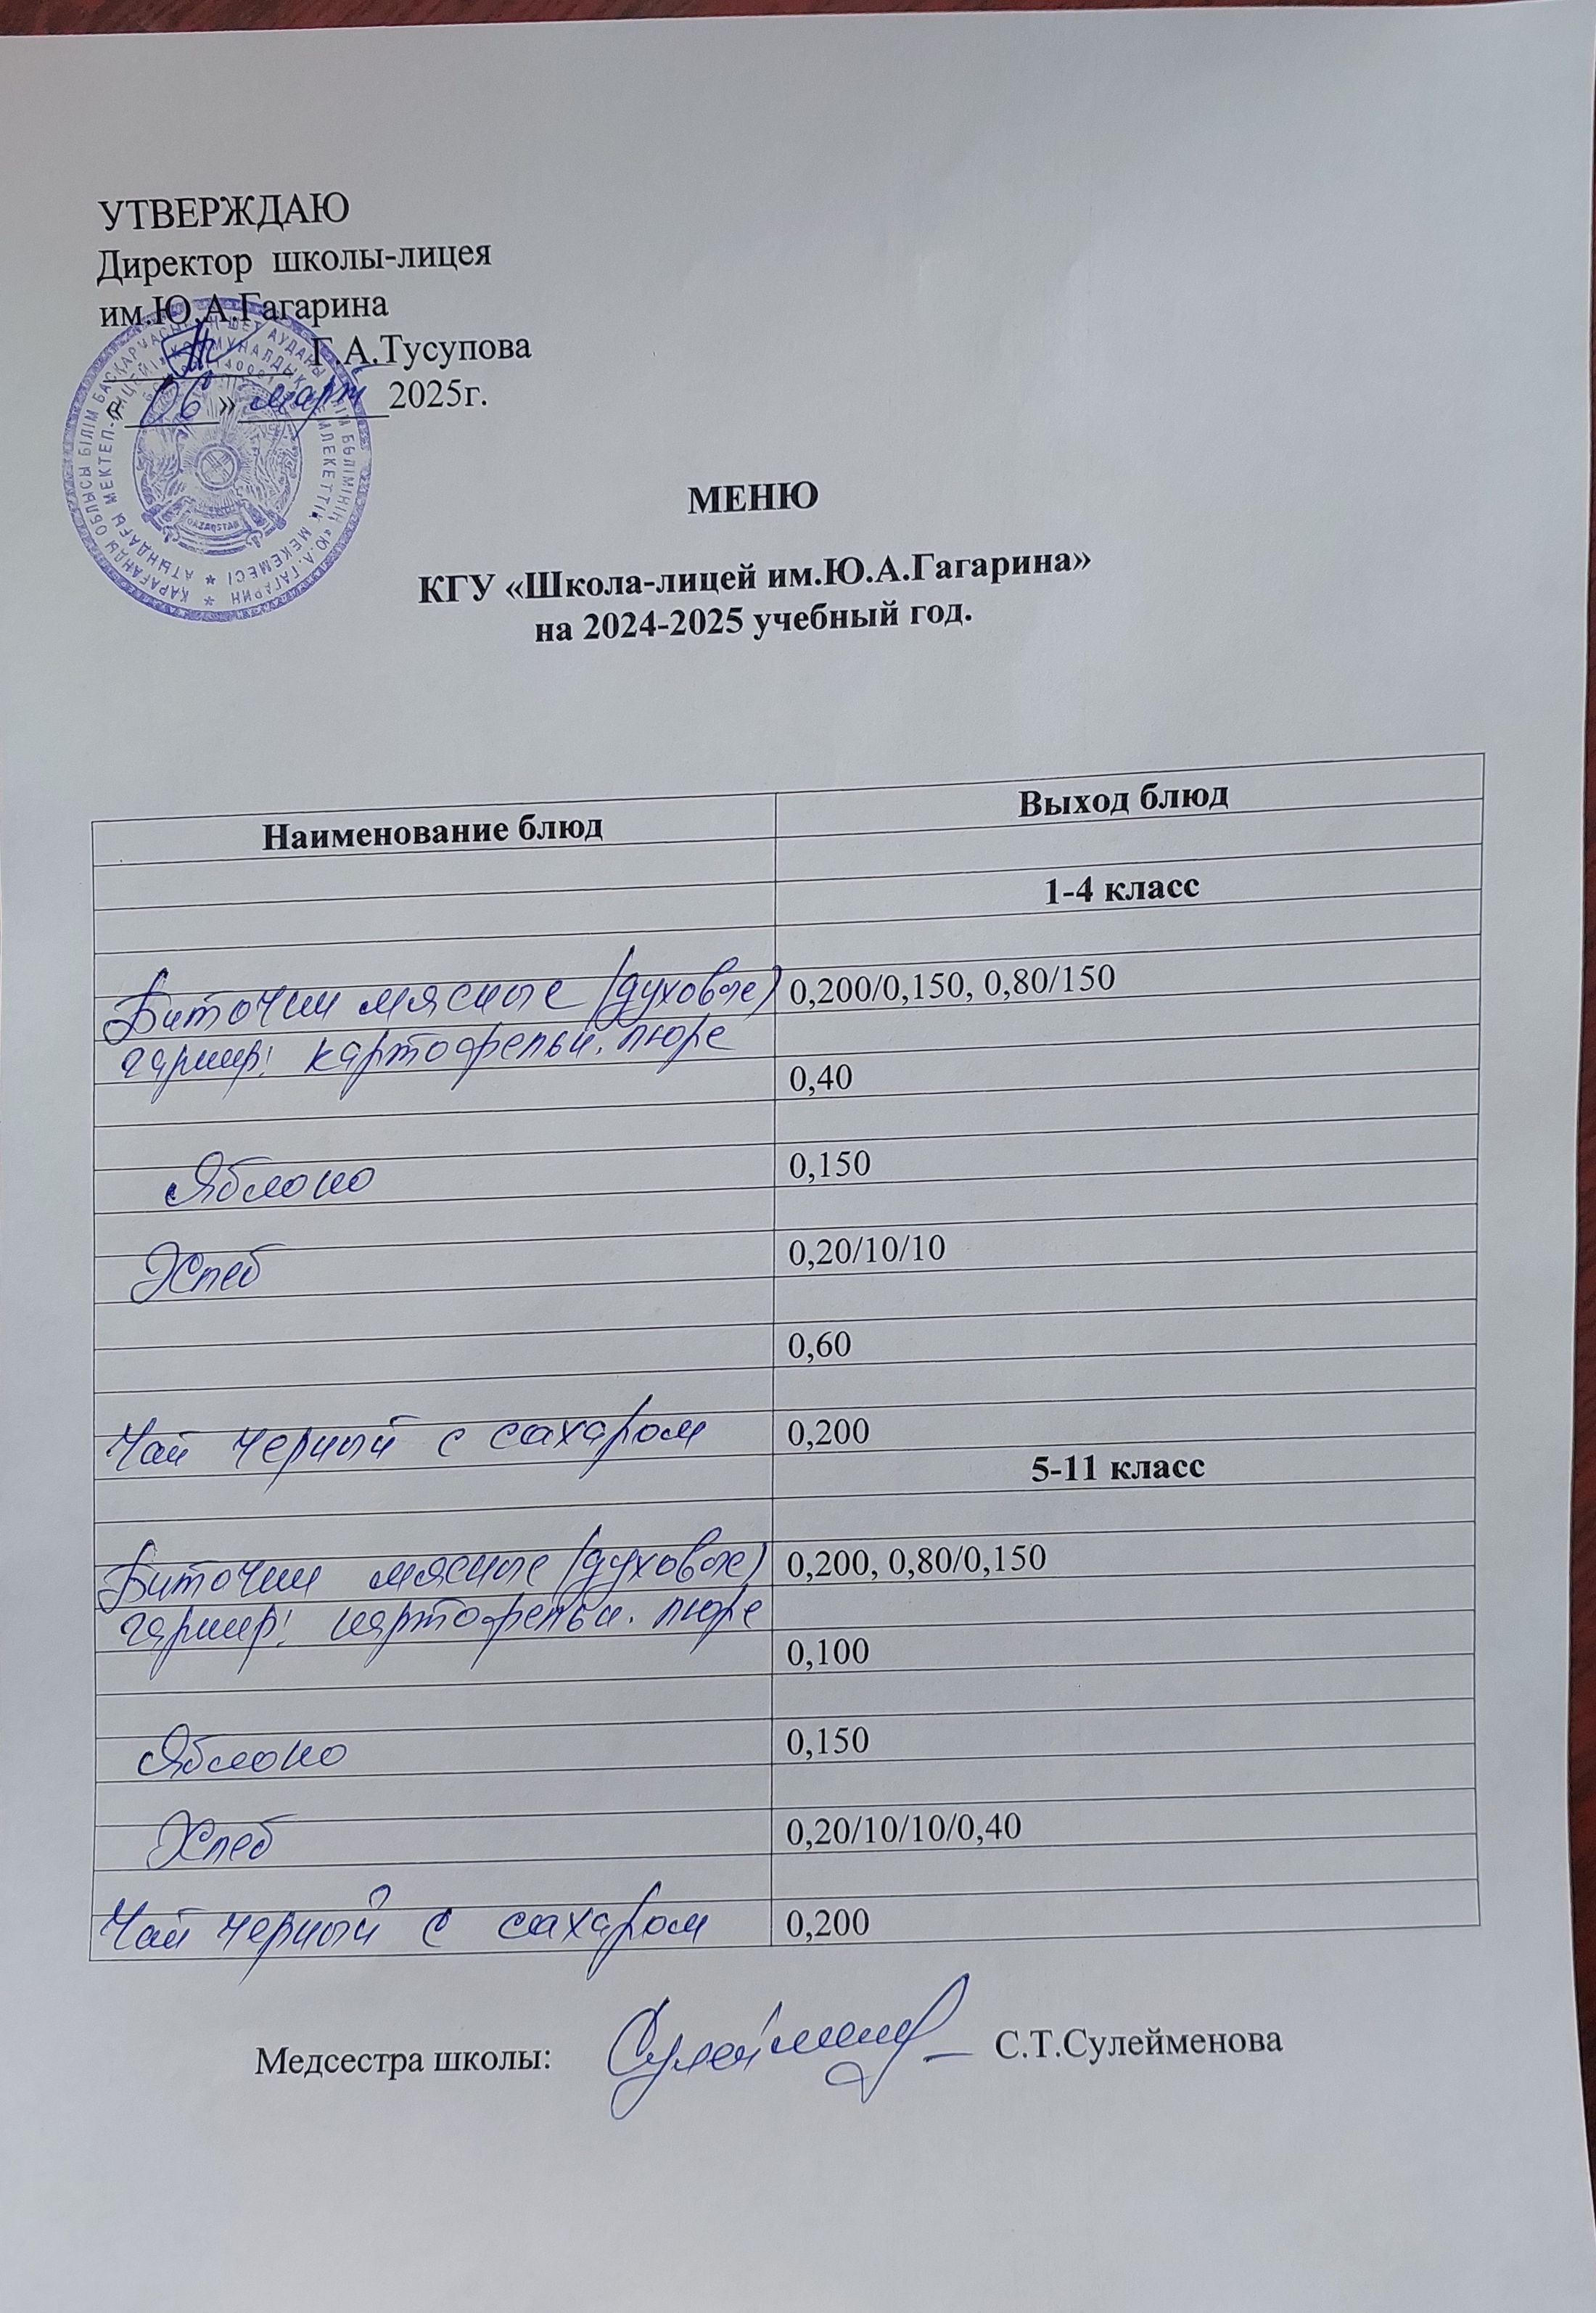 УТВЕРЖДАЮ
Директор школы-лицея
им.Ю.А.Гагарина
Г.А.Тусупова
« 06 » март 2025г.
МЕНЮ
КГУ «Школа-лицей им.Ю.А.Гагарина»
на 2024-2025 учебный год.
Наименование блюд Выход блюд
1-4 класс
Биточки мясные (духовое) 0,200/0,150, 0,80/150
гарнир: картофельн. пюре
0,40
Яблоко 0,150
Хлеб 0,20/10/10
0,60
Чай черный с сахаром 0,200
5-11 класс
Биточки мясные (духовое) 0,200, 0,80/0,150
гарнир: картофельн. пюре
0,100
Яблоко 0,150
Хлеб 0,20/10/10/0,40
Чай черный с сахаром 0,200
Медсестра школы: Сулейменова С.Т.Сулейменова